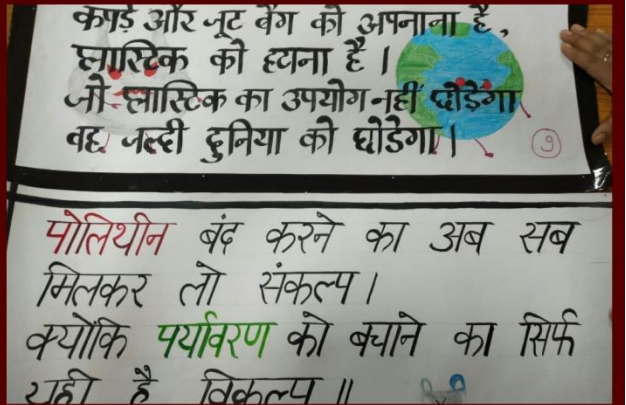 कपड़े और जूट बैग को अपनाना है,
प्लास्टिक को हटाना है।
जो प्लास्टिक का उपयोग नहीं छोडेगा
वह जल्दी दुनिया को छोडेगा।
9
पोलिथीन बंद करने का अब सब
मिलकर लो संकल्प।
क्योंकि पर्यावरण को बचाने का सिर्फ
यही है विकल्प॥